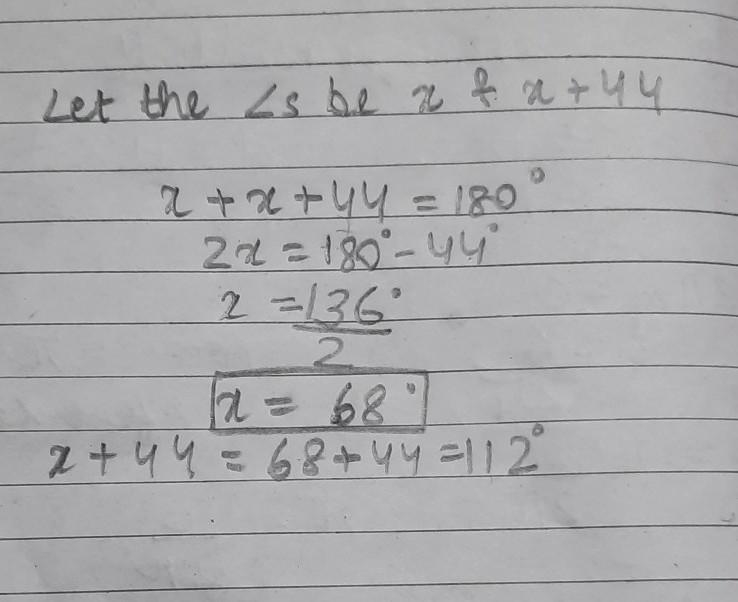 Let the ∠s be x & x + 44
x + x + 44 = 180°
2x = 180° - 44°
x = 136°
2
x = 68°
x + 44 = 68 + 44 = 112°